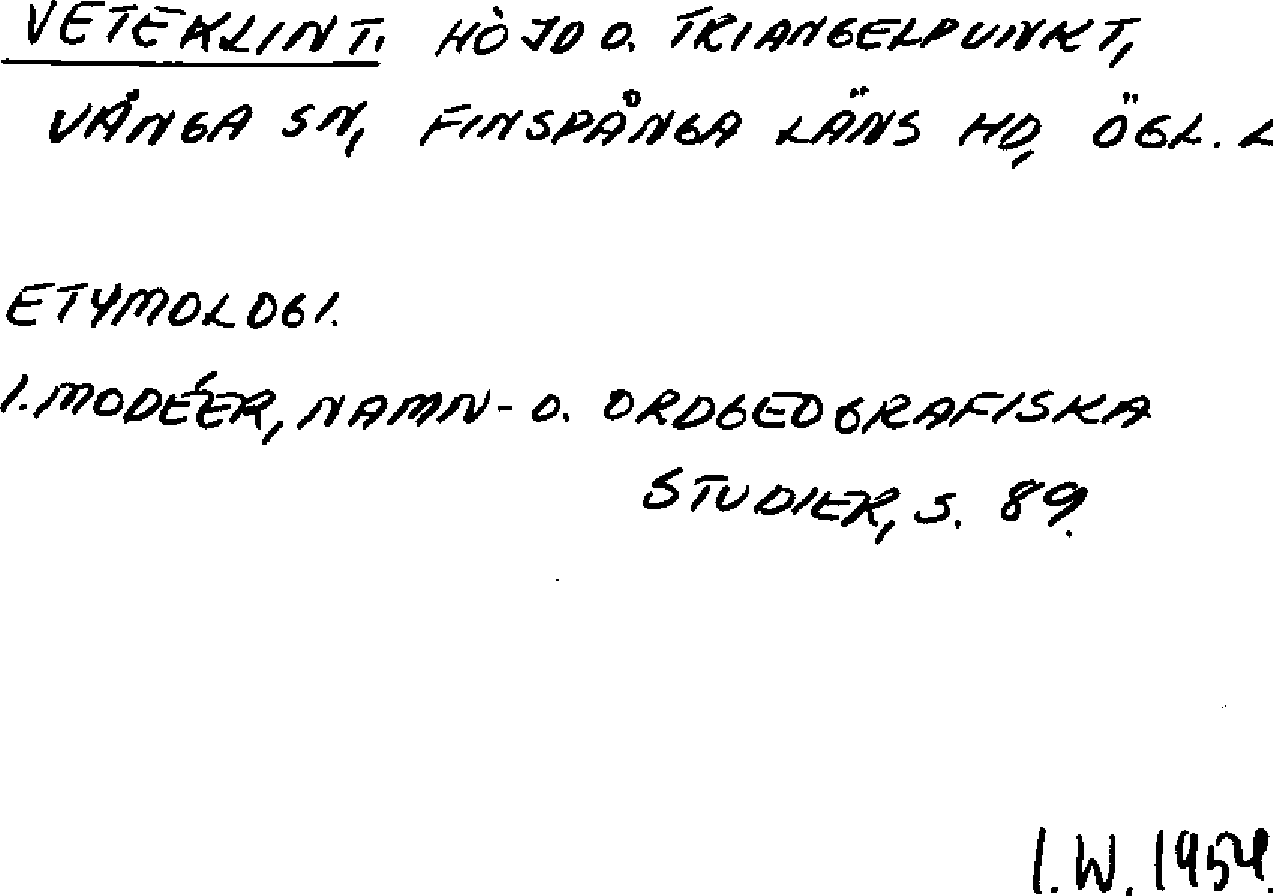 VETEKLINT. HÖJD O. TRIANGELPUNKT,
VÅNGA SN, FINSPÅNGA LÄNS HD, ÖGL. L
ETYMOLOGI.
I. MODÉER, NAMN- O. ORDGEOGRAFISKA
STUDIER, S. 89.
I. W. 1954.